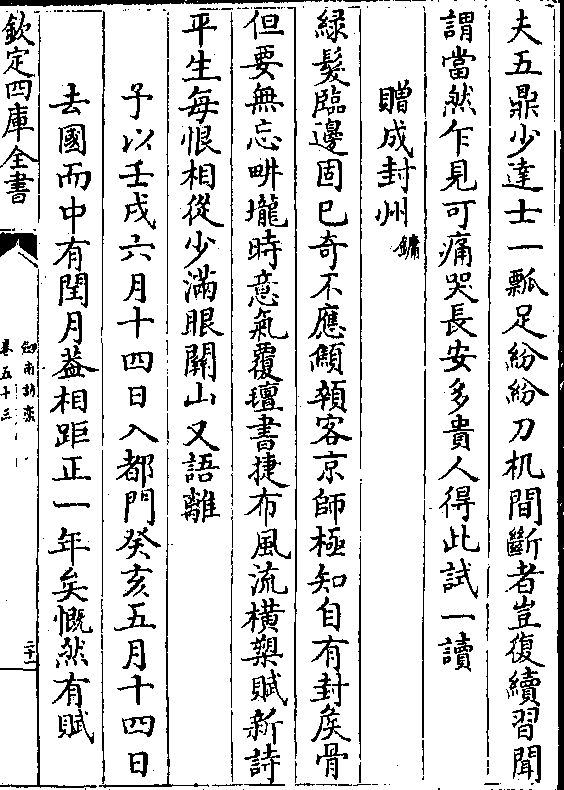 夫五鼎少達士一瓢足紛紛刀机間斷者豈復續習聞
謂當然乍見可痛哭長安多貴人得此試一讀
贈成封州鏞
緑髪臨邊固已奇不應顦顇客京師極知自有封侯骨
但要無忘畊壠時意氣覆壇書捷布風流横槊賦新詩
平生每恨相從少滿眼關山又語離
予以壬戌六月十四日入都門癸亥五月十四日
去國而中有閏月葢相距正一年矣慨然有賦
欽定四庫全書
劍南詩稾
卷五十三